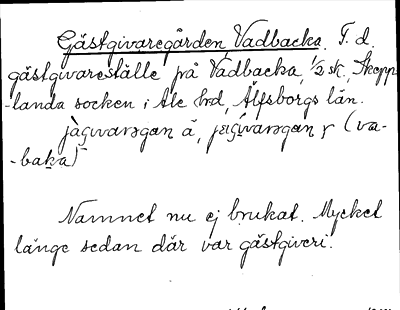 Gästgivaregården Vadbacka. F. d.
gästgivareställe på Vadbacka, 1/2 sk, Skepp-
-landa socken i Ale hrd, Älfsborgs län.
(va-
-baka)
Namnet nu ej brukat. Mycket
länge sedan där var gästgiveri.